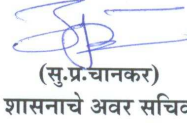 (सु.प्र.चानकर)
शासनाचे अवर सचिव